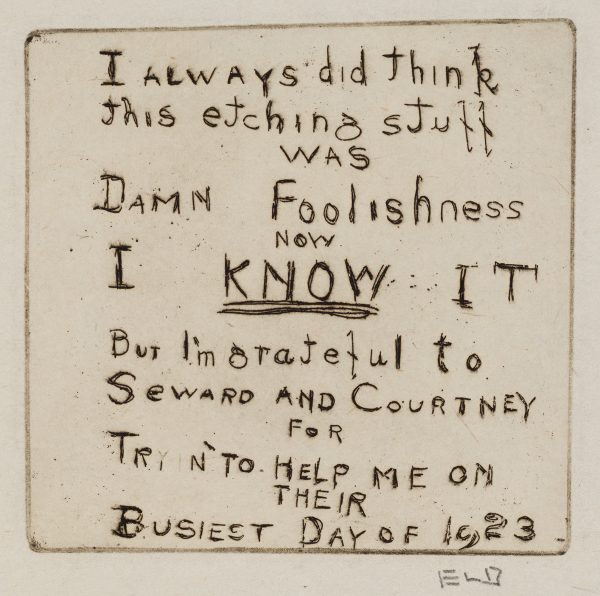 I ALWAYS did think
this etching stuff
WAS
DAMN Foolishness
NOW
I KNOW IT
BUT I'm grateful to
SEWARD AND COURTNEY
FOR
TRYIN' TO HELP ME ON
THEIR
BUSIEST DAY OF 1923
ELD